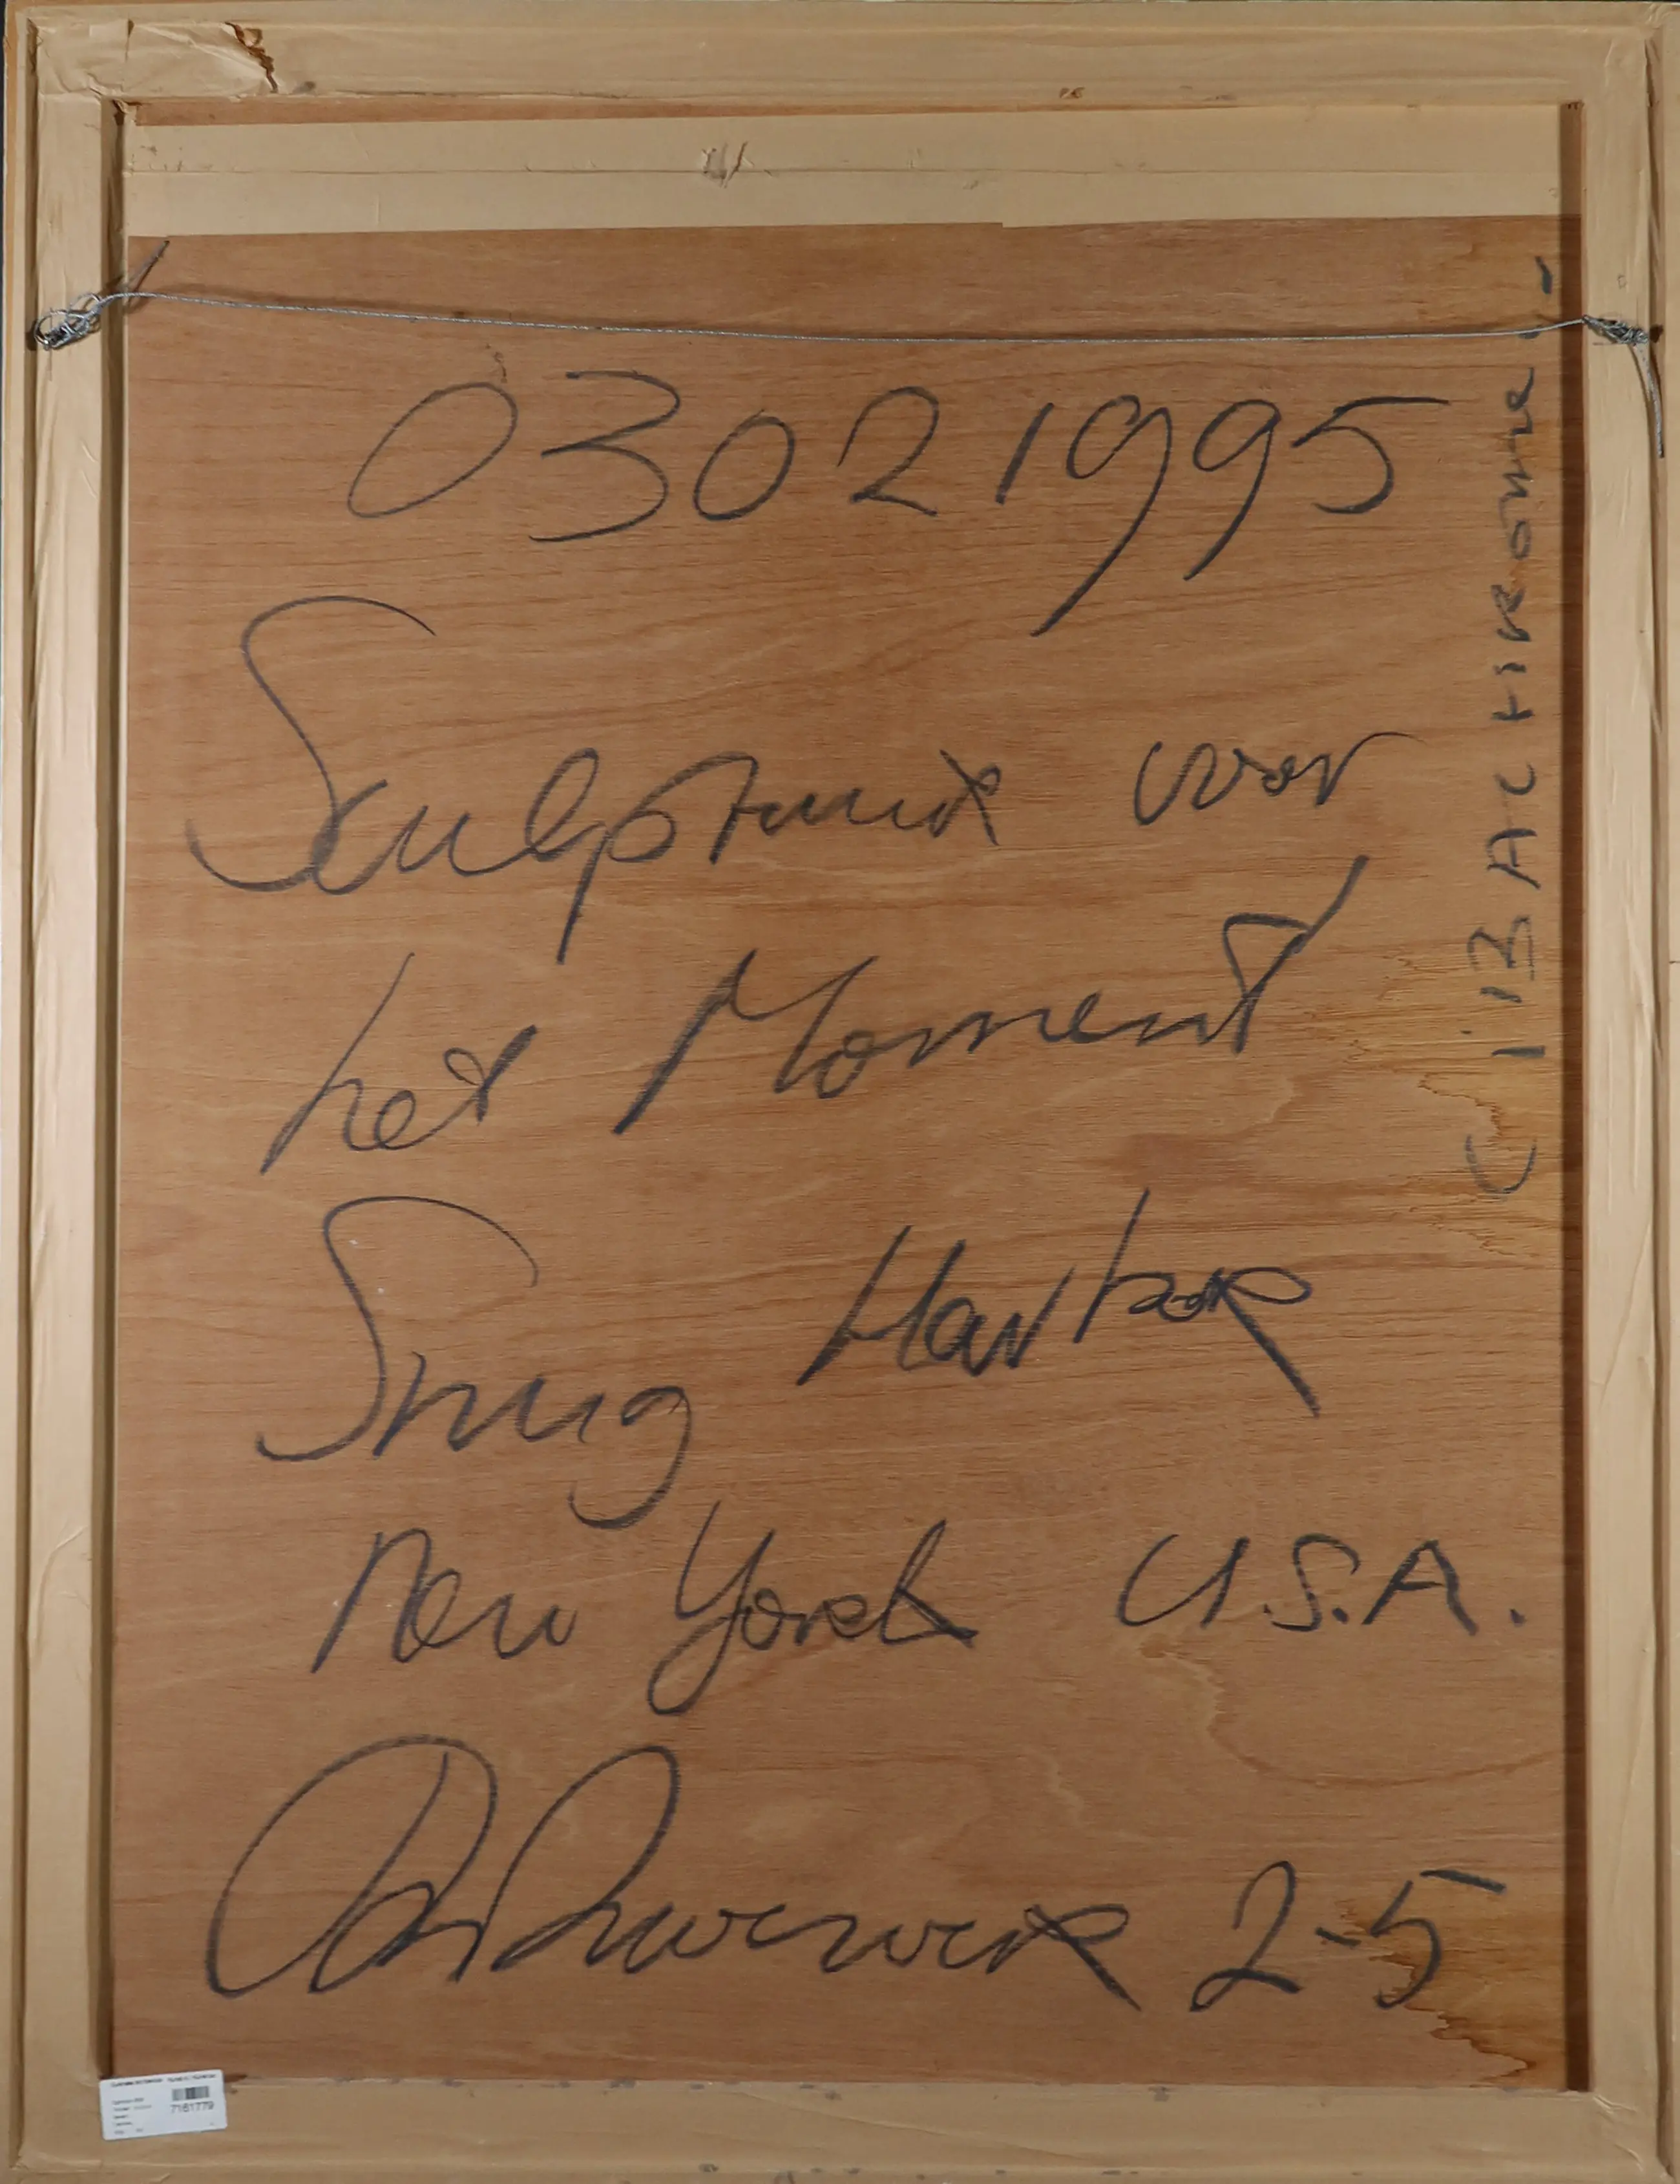 03021995
Sculptuur voor
het Moment
Snug Harbor
New York U.S.A.
2-5
(CIBACHROME)
7161779